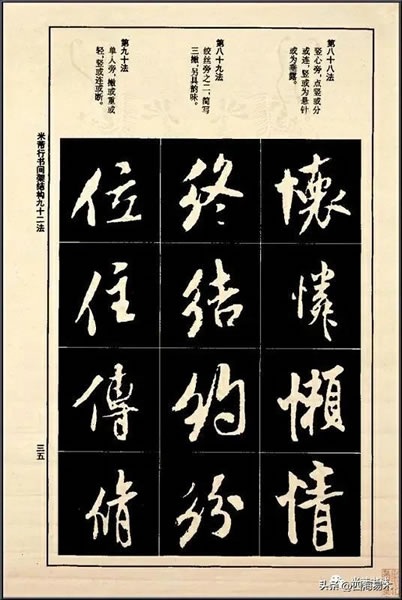 第八十八法
竖心旁,点竖或分
或连,竖或为悬针
或为垂露。
第八十九法
绞丝旁之二,简写
三撇,另具韵味。
第九十法
单人旁,撇或重或
轻,竖或连或断。
懷憐懶情
終結約紛
位住傳脩
米芾行书间架结构九十二法
三五